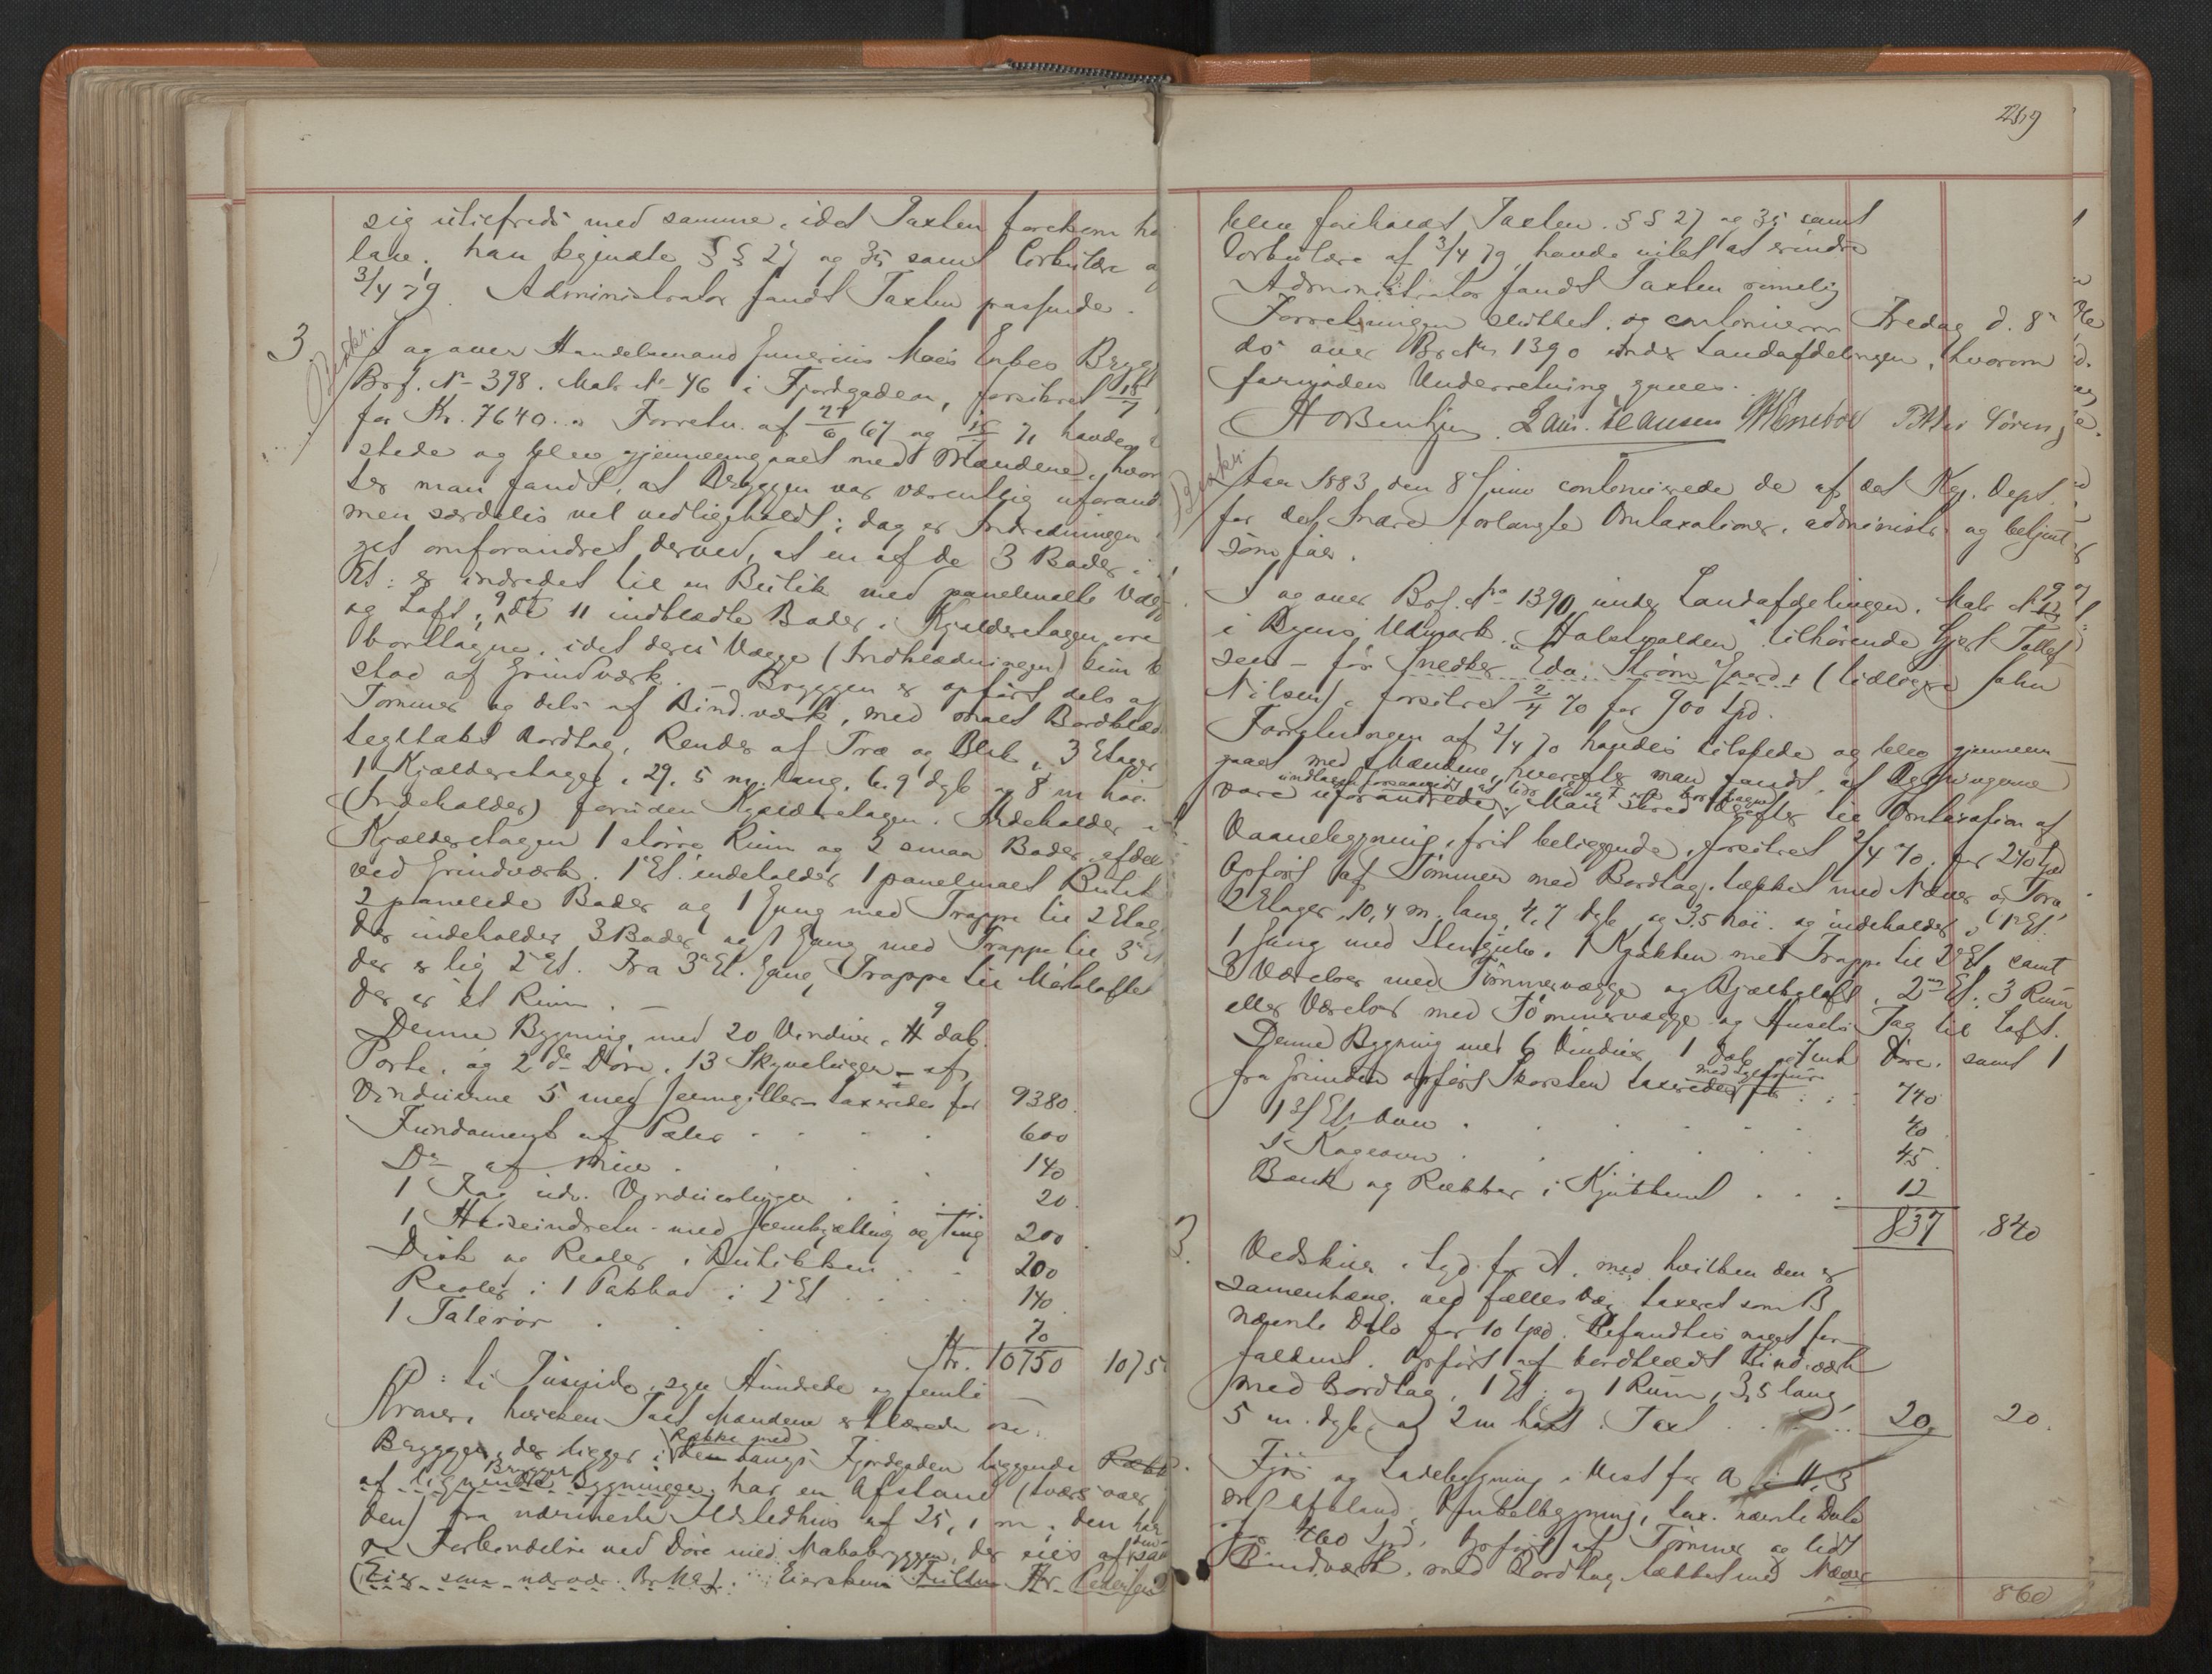 sig utilfreds med samme, idet Taxten forekom ha
lav. han kjendte §§ 27 og 35 samt Cirkulære a
3/4 79. Administrator fandt Taxten passende.
3.
I og over Handelsmand Bryg
Brf. No 398. Matr. No 46 i Fjordgaden, forsikret 18/7
for Kr. 7640. Forretn. af 24/6 67 og 71 havdes
stede og blev gjennemgaaet med Mændene, hvor
ter man fandt, at Bryggen var væsentlig uforand
men særdeles vel vedligeholdt; dag er Indredningen
get omforandret derved, at en af de 3 Boder i
Et: er indredet til en Butik med panelmalte Væg
og Loft, de 11 indklædte Boder i Kjælderetagen ere
borttagne, idet deres Vægge (Indklædningen) kun b
stod af Grindværk. – Bryggen er opført dels af
Tømmer og dels af Bindværk, med malt Bordklæd
teglhakt Bordtag, Render af Træ og Blik, 3 Etager
1 Kjælderetage, 29,5 m. lang, 6,9 dyb og 8 m høi.
(Indeholder) foruden Kjælderetagen. Indeholder i
Kjælderetagen 1 større Rum og 2 smaa Boder afdel
ved Grindværk. 1 Et. indeholder 1 panelmalt Butik
2 panelede Boder og 1 Gang med Trappe til 2 Etag
der indeholder 3 Boder og 1 Gang med Trappe til 3 Et
der er lig 2 Et. Fra 3 Et. Gang, Trappe til Mørkloftet
der er et Rum. –
Denne Bygning med 20 Vinduer, 9 dob.
Porte, og 2 do Døre, 13 Skyveluger – af
Vinduerne 5 med Jerngitter – taxeredes for 9380.
Fundament af Pæler . . . . 600
Do af Mur . . . . 140
1 Fag udv. Vinduesluger . . . . 20.
1 Heiseindretn. med Jernkjætting og Taug 200
Disk og Reoler i Butikken . . 200
Reoler i 1 Pakbod i 2 Et . . . . 140
1 Talerør . . . . 70
Kr. 10750 1075
D: ti Tusinde, syv Hundrede og femti
Kroner, hvilken Taxt Mændene erklærede osv.
Bryggen, der ligger i Række med den langs Fjordgaden liggende Række
af lignende Brygger Bygninger, har en Afstand (tværs over
den) fra nærmeste Ildstedhus af 25,1 m. den har
Forbindelse ved Døre med Nabobryggen, der eies af
(Eier som nærvær. Br. No 2). Eiersken Kr. Pedersen
259
blev foreholdt Taxten. §§ 27 og 35 samt
Cirkulære af 3/4 79, havde intet at erindre
Administrator fandt Taxten rimelig
Forretningen sluttet, og continuerer Fredag d. 8
ds over Br. No 1390 under Landafdelingen, hvorom
fornøden Underretning gaves.
Laur. Hansen
Aar 1883 den 8 Juni continuerede de af det Kgl. Dept.
for det Indre forlangte Omtaxationer, administr. og betjent
som før.
I og over Brf. No 1390 under Landafdelingen, Matr. No
i Byens Udmark, tilhørende Gjert Tollef
sen – før Snedker Edv. Strøm (tidligere John
Nilsen), forsikret 2/4 70 for 900 Spd.
Forretningen af 2/4 70 havdes tilstede og blev gjennem
gaaet med Mændene, hvorefter man fandt, at Bygningerne
vare uforandrede. Man skred derefter til Omtaxation af
Vaanebygning, frit beliggende, forsikret 2/4 70. for 240 Spd
Opført af Tømmer med Bordtag, tækket med Næver og Torv
2 Etager, 10,4 m. lang, 4,7 dyb og 3,5 høi. og indeholder, i 1ste Et.
1 Gang med Stengulv, 1 Kjøkken med Trappe til 2 Et samt
3 Værelser med Tømmervægge og Bjælkeloft, 2den Et. 3 Rum
eller Værelser med Tømmervægge og Husets Tag til Loft.
Denne Bygning med 6 Vinduer, 1 dob. og 7 enk Døre, samt 1
fra Grunden opført Skorsten taxeredes for . . . 740
1 3/ Et. Ovn . . . . . 40
1 Kogeovn . . . . . 45
Bænk og Rækker i Kjøkkenet . . . 12
837 840
3.
Vedskur i Syd for A, med hvilken den er
samenhæng. ved fælles Væg taxeret som B
nævnte Dato for 10 Spd. Befandtes noget for
faldent. Opført af bordklædt Bindværk
med Bordtag, 1 Et. og 1 Rum, 3,5 lang,
5 m. dyb og 2 m høi. Taxt . . . . . 20 20.
Fjøs og Ladebygning i Vest for A i
m Afstand. Vinkelbygning, tax. nævnte Dato
for 460 Spd. Opført af Tømmer og lidt
Bindværk, med Bordtag tækket med Næver
860